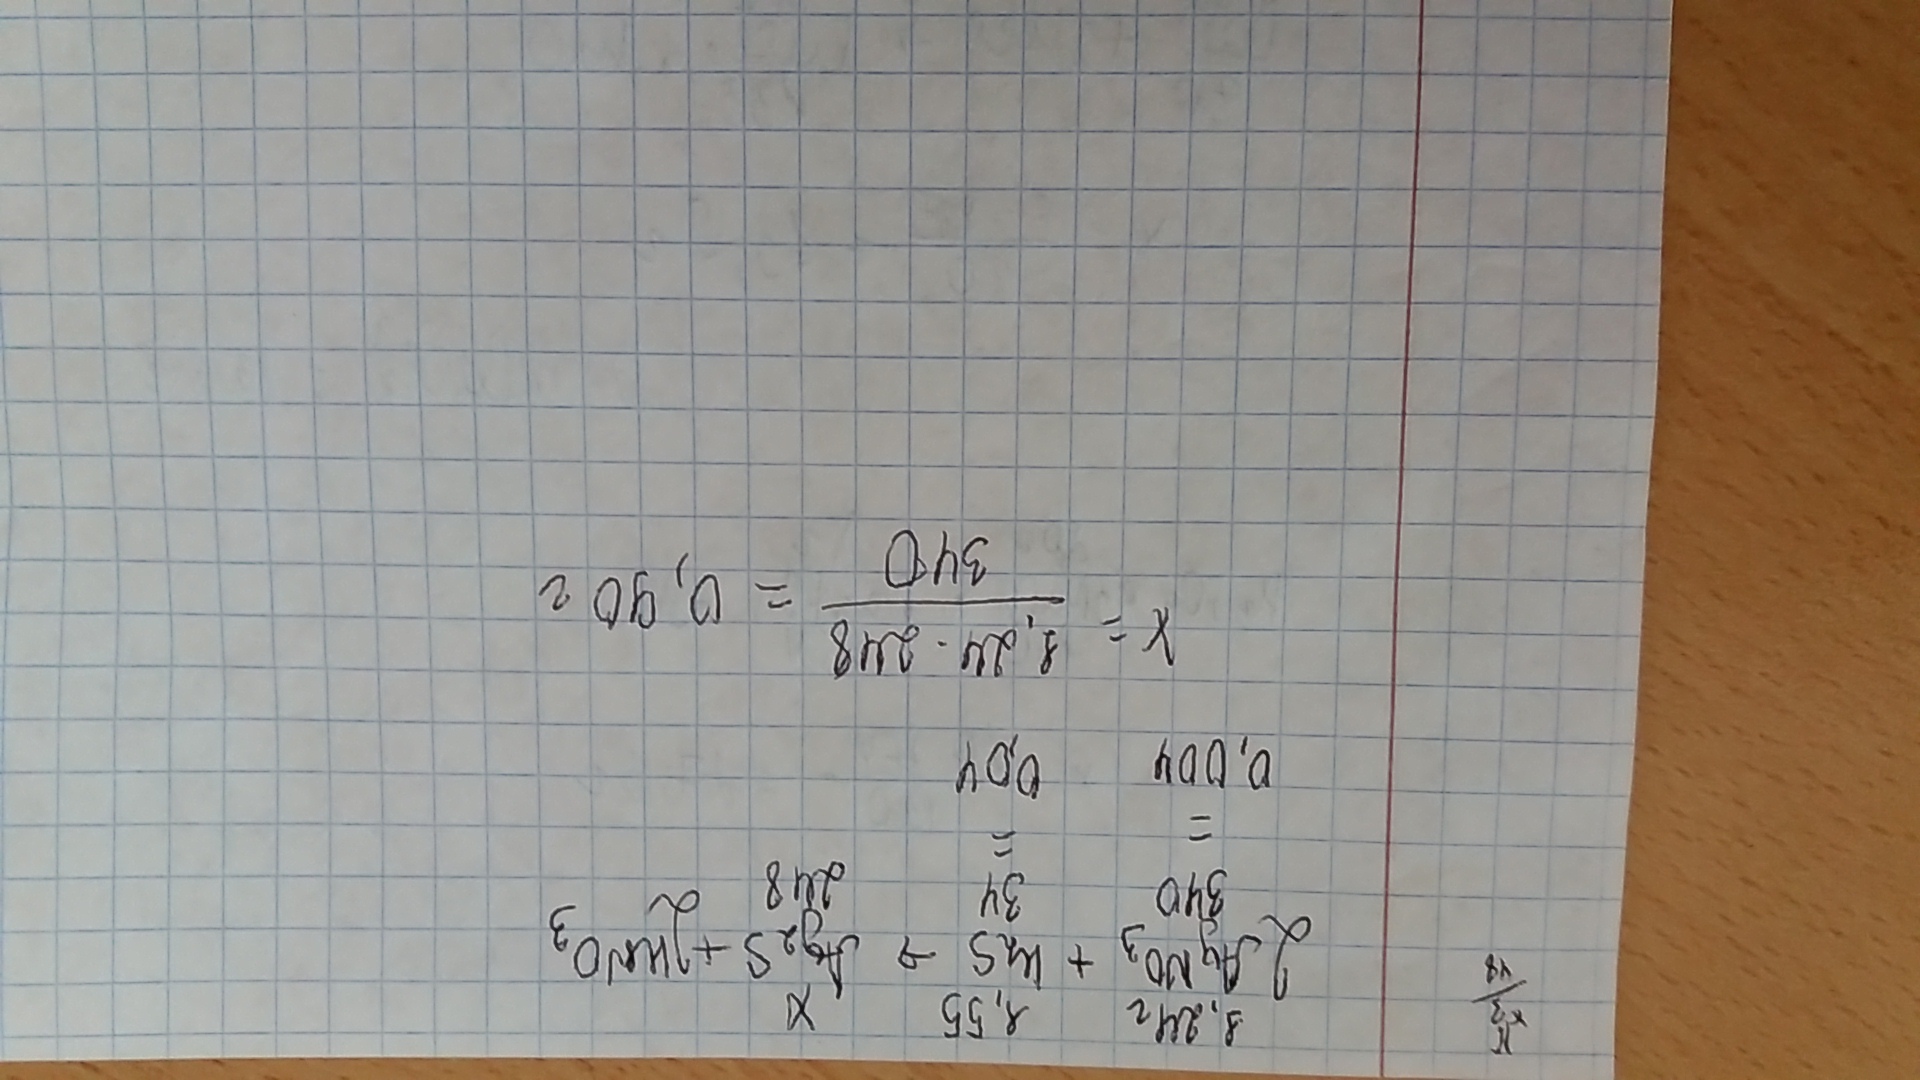 1,24г 1,55 X
2AgNO3 + H2S → Ag2S + 2HNO3
340 34 248
= =
0,004 0,04
X = 1,24 · 248 / 340 = 0,90 г